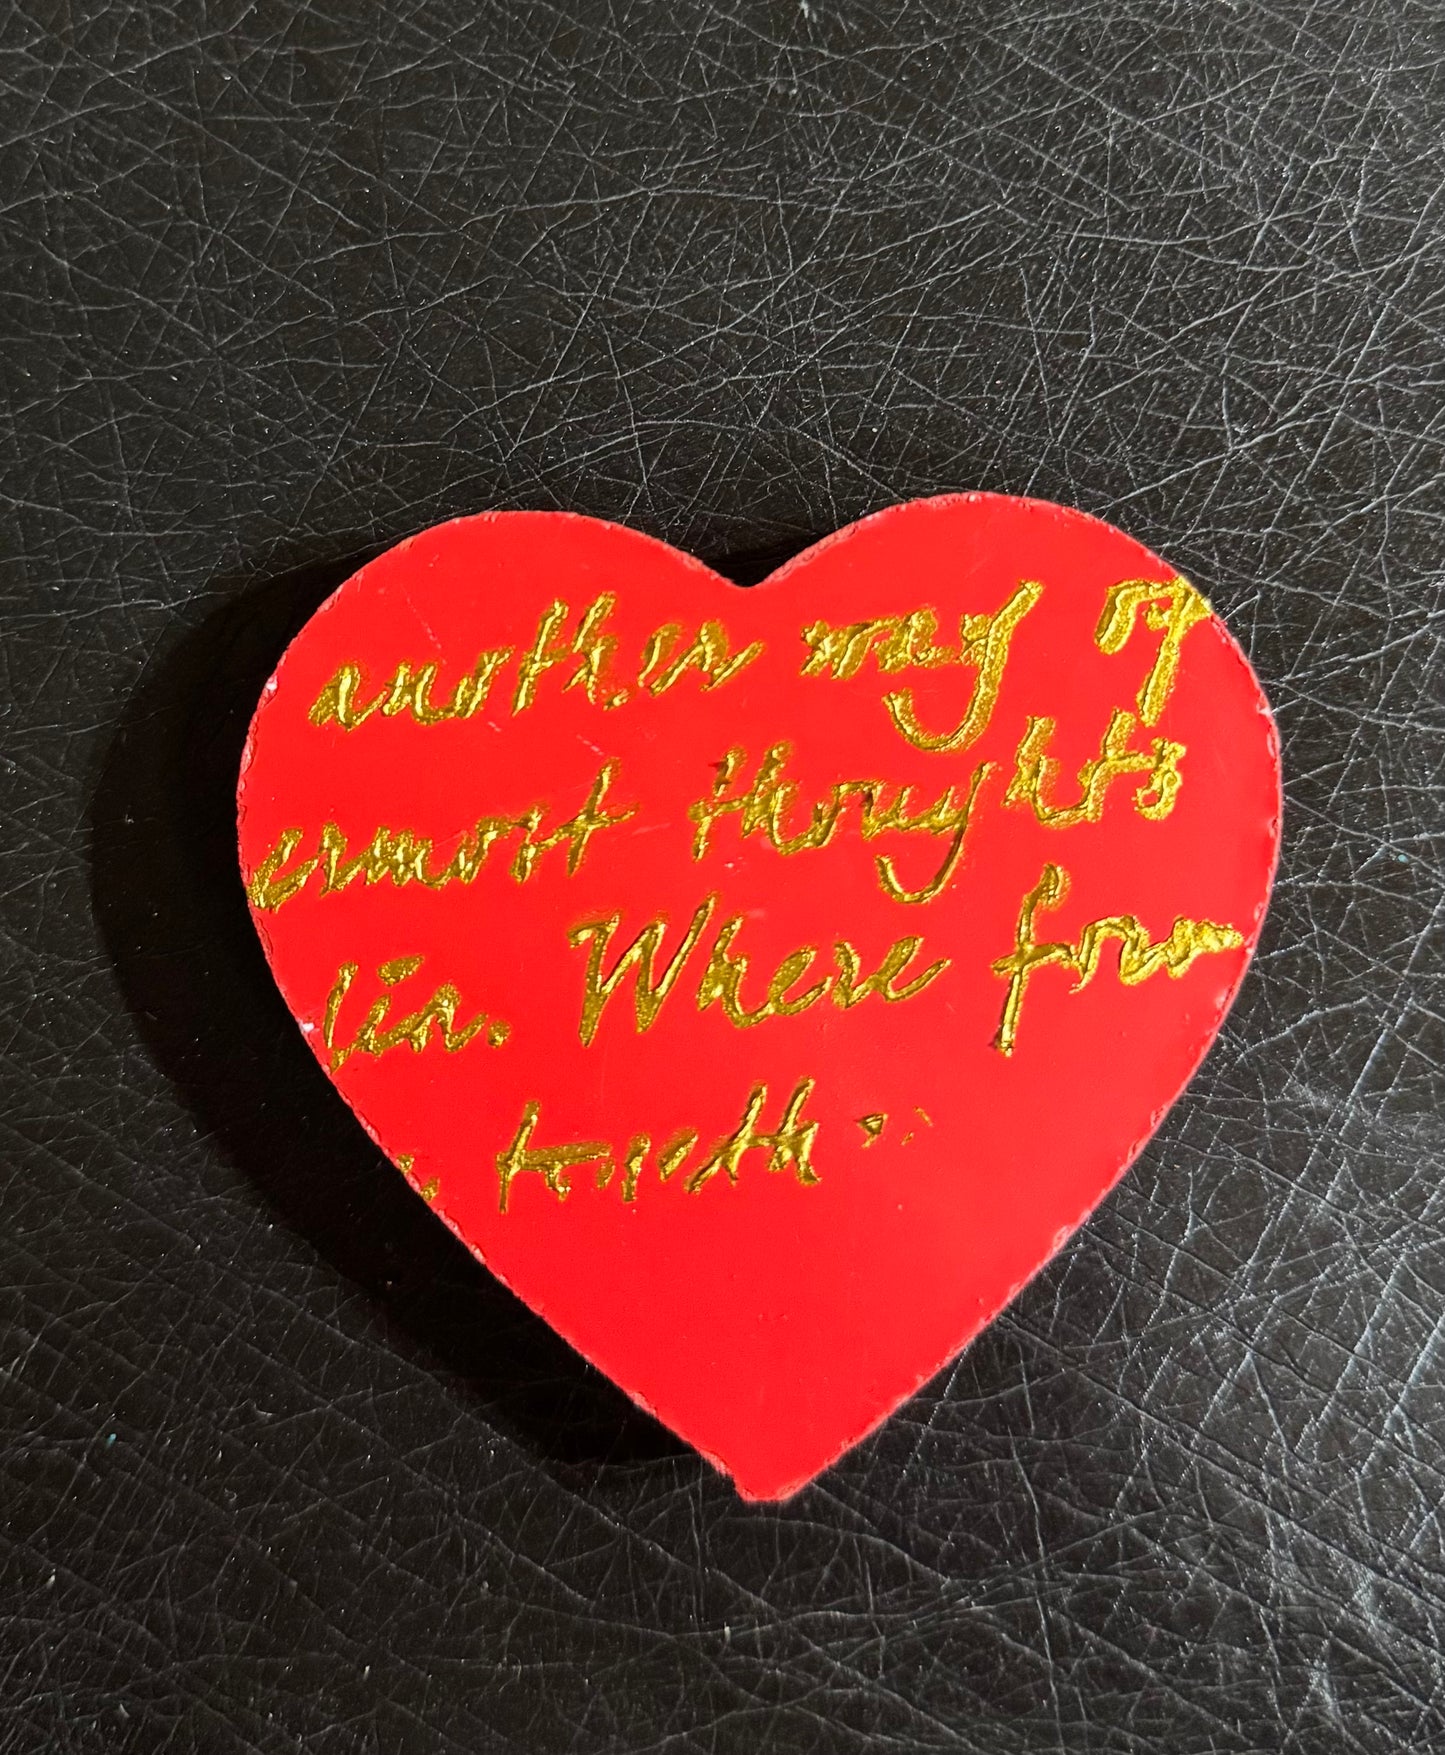 another way of
ermost thoughts
lin. Where from